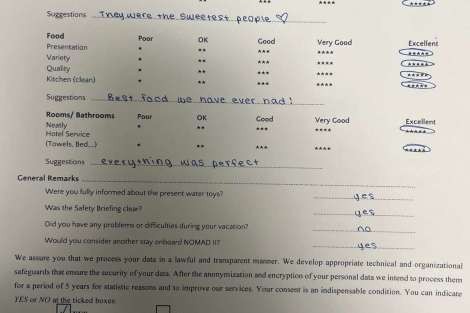 ** *** **** *****
Suggestions They were the sweetest people ♡
Food Poor OK Good Very Good Excellent
Presentation * ** *** **** *****
Variety * ** *** **** *****
Quality * ** *** **** *****
Kitchen (clean) * ** *** **** *****
Suggestions Best food we have ever had!
Rooms/ Bathrooms Poor OK Good Very Good Excellent
Neatly * ** *** **** *****
Hotel Service
(Towels, Bed...) * ** *** **** *****
Suggestions everything was perfect
General Remarks
Were you fully informed about the present water toys? yes
Was the Safety Briefing clear? yes
Did you have any problems or difficulties during your vacation? no
Would you consider another stay onboard NOMAD II? yes
We assure you that we process your data in a lawful and transparent manner. We develop appropriate technical and organizational
safeguards that ensure the security of your data. After the anonymization and encryption of your personal data we intend to process them
for a period of 5 years for statistic reasons and to improve our services. Your consent is an indispensable condition. You can indicate
YES or NO at the ticked boxes